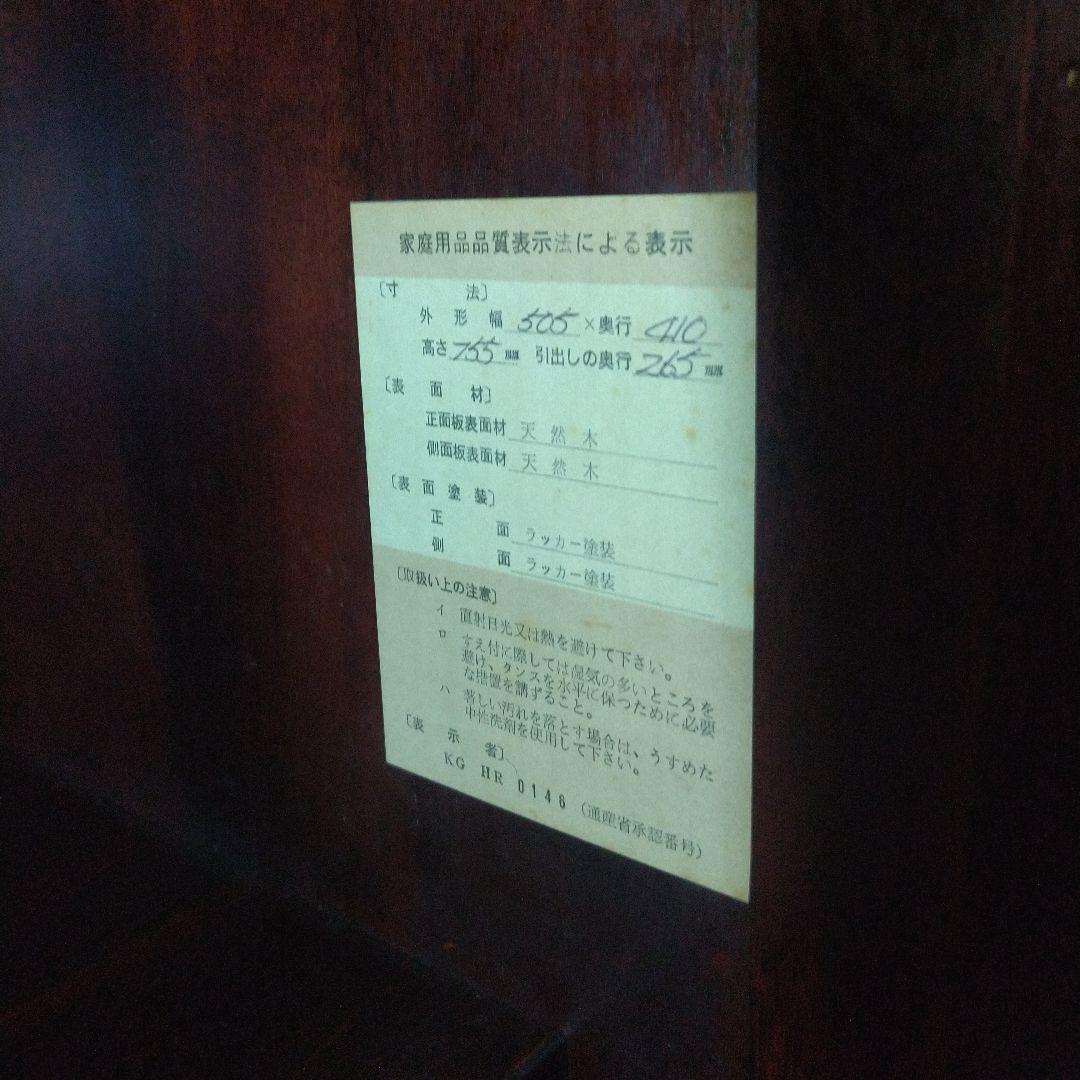 家庭用品品質表示法による表示
〔寸法〕
外形幅 505 ×奥行 410
高さ 755 mm 引出しの奥行 265 mm
〔表面材〕
正面板表面材 天然木
側面板表面材 天然木
〔表面塗装〕
正面 ラッカー塗装
側面 ラッカー塗装
〔取扱い上の注意〕
イ 直射日光又は熱を避けて下さい。
ロ すえ付に際しては湿気の多いところを
避け、タンスを水平に保つために必要
な措置を講ずること。
ハ 著しい汚れを落とす場合は、うすめた
中性洗剤を使用して下さい。
〔表示者〕
KG HR 0146 (通産省承認番号)